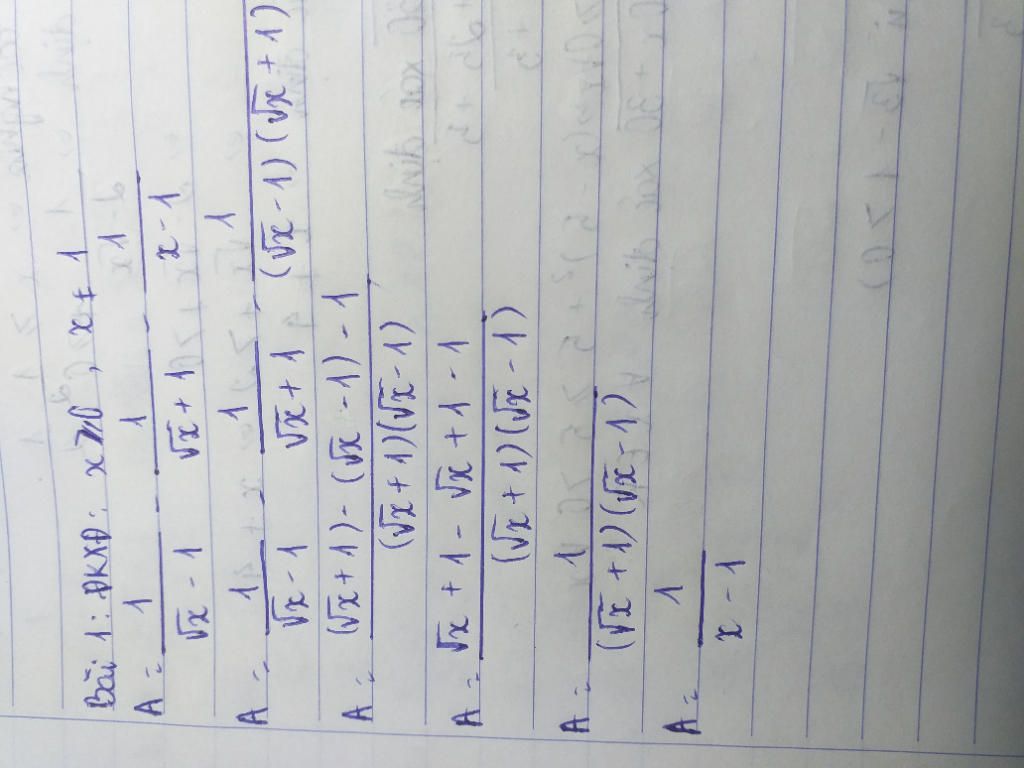 Bài 1: ĐKXĐ: x ≥ 0, x ≠ 1
A = 1/(√x - 1) - 1/(√x + 1) - 1/(x - 1)
A = 1/(√x - 1) - 1/(√x + 1) - 1/((√x - 1)(√x + 1))
A = ((√x + 1) - (√x - 1) - 1)/((√x + 1)(√x - 1))
A = (√x + 1 - √x + 1 - 1)/((√x + 1)(√x - 1))
A = 1/((√x + 1)(√x - 1))
A = 1/(x - 1)